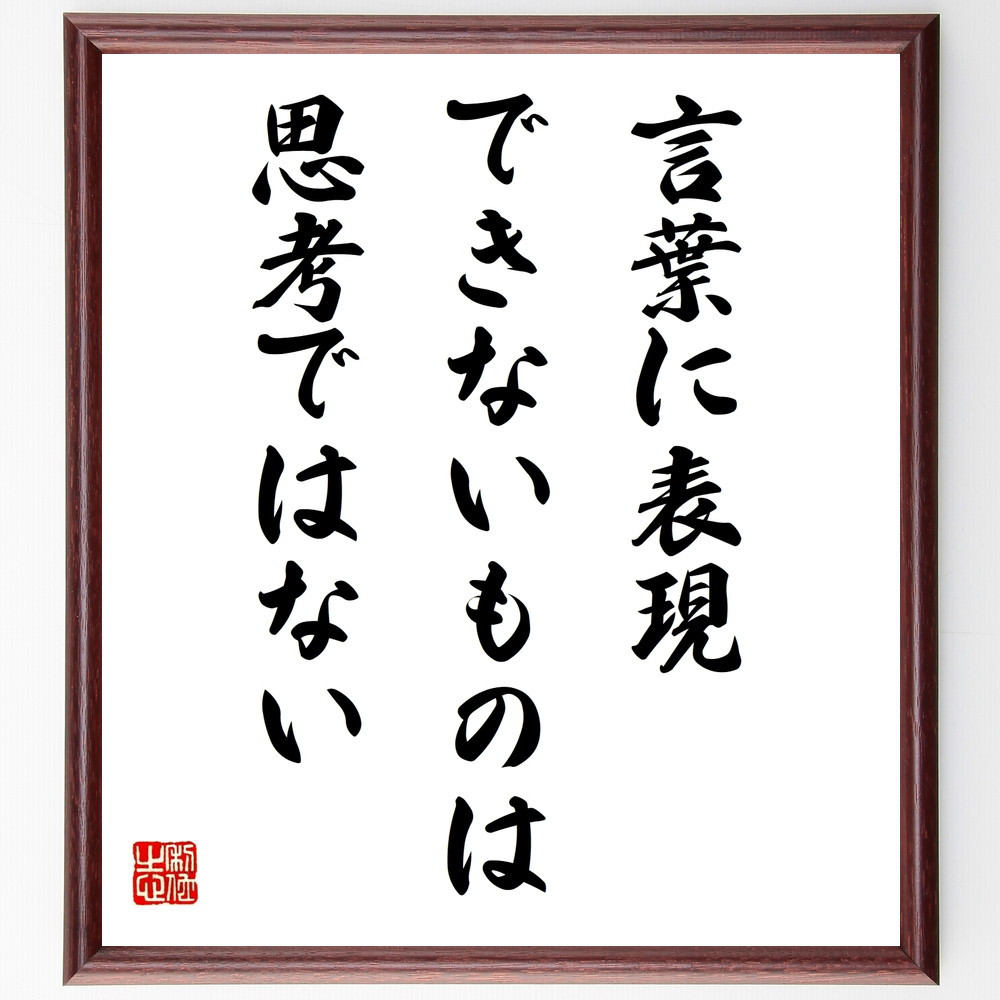 言葉に表現
できないものは
思考ではない